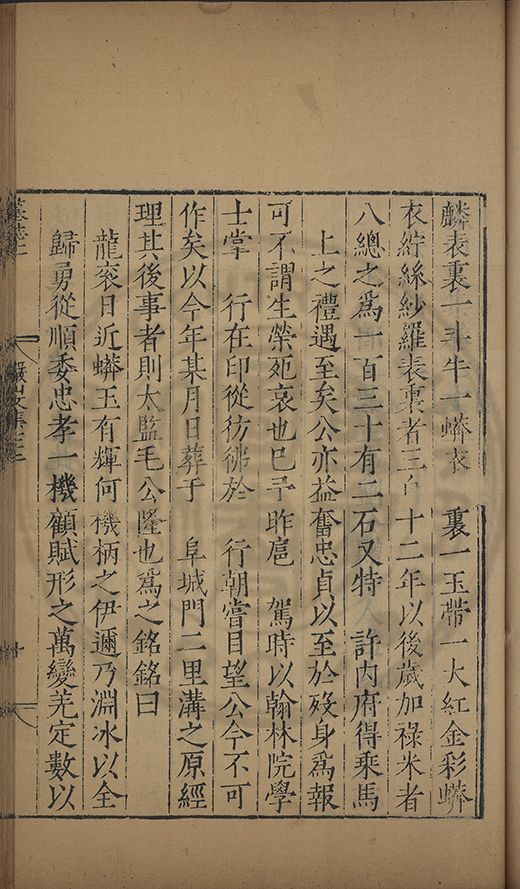 麟表裏一斗牛一蟒衣　裏一玉帶一大紅金彩蟒
衣紵絲紗羅表裏者三　十二年以後歲加祿米者
八總之爲一百三十有二石又特　許內府得乘馬
上之禮遇至矣公亦益奮忠貞以至於歿身爲報
可不謂生榮死哀也已予昨扈　駕時以翰林院學
士掌　行在印從彷彿於　行朝嘗目望公今不可
作矣以今年某月日葬于　阜城門二里溝之原經
理其後事者則太監毛公隆也爲之銘銘曰
龍袞日近蟒玉有輝何機柄之伊邇乃淵冰以全
歸勇從順委忠孝一機顧賦形之萬變羌定數以